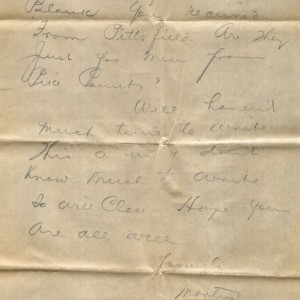 Blank You received
From Pittsfield. Are They
Just for men from
Pike County?
Well haven't
much time to write
This a.m. don't
Know much to write
So will Close - Hope you
Are all well